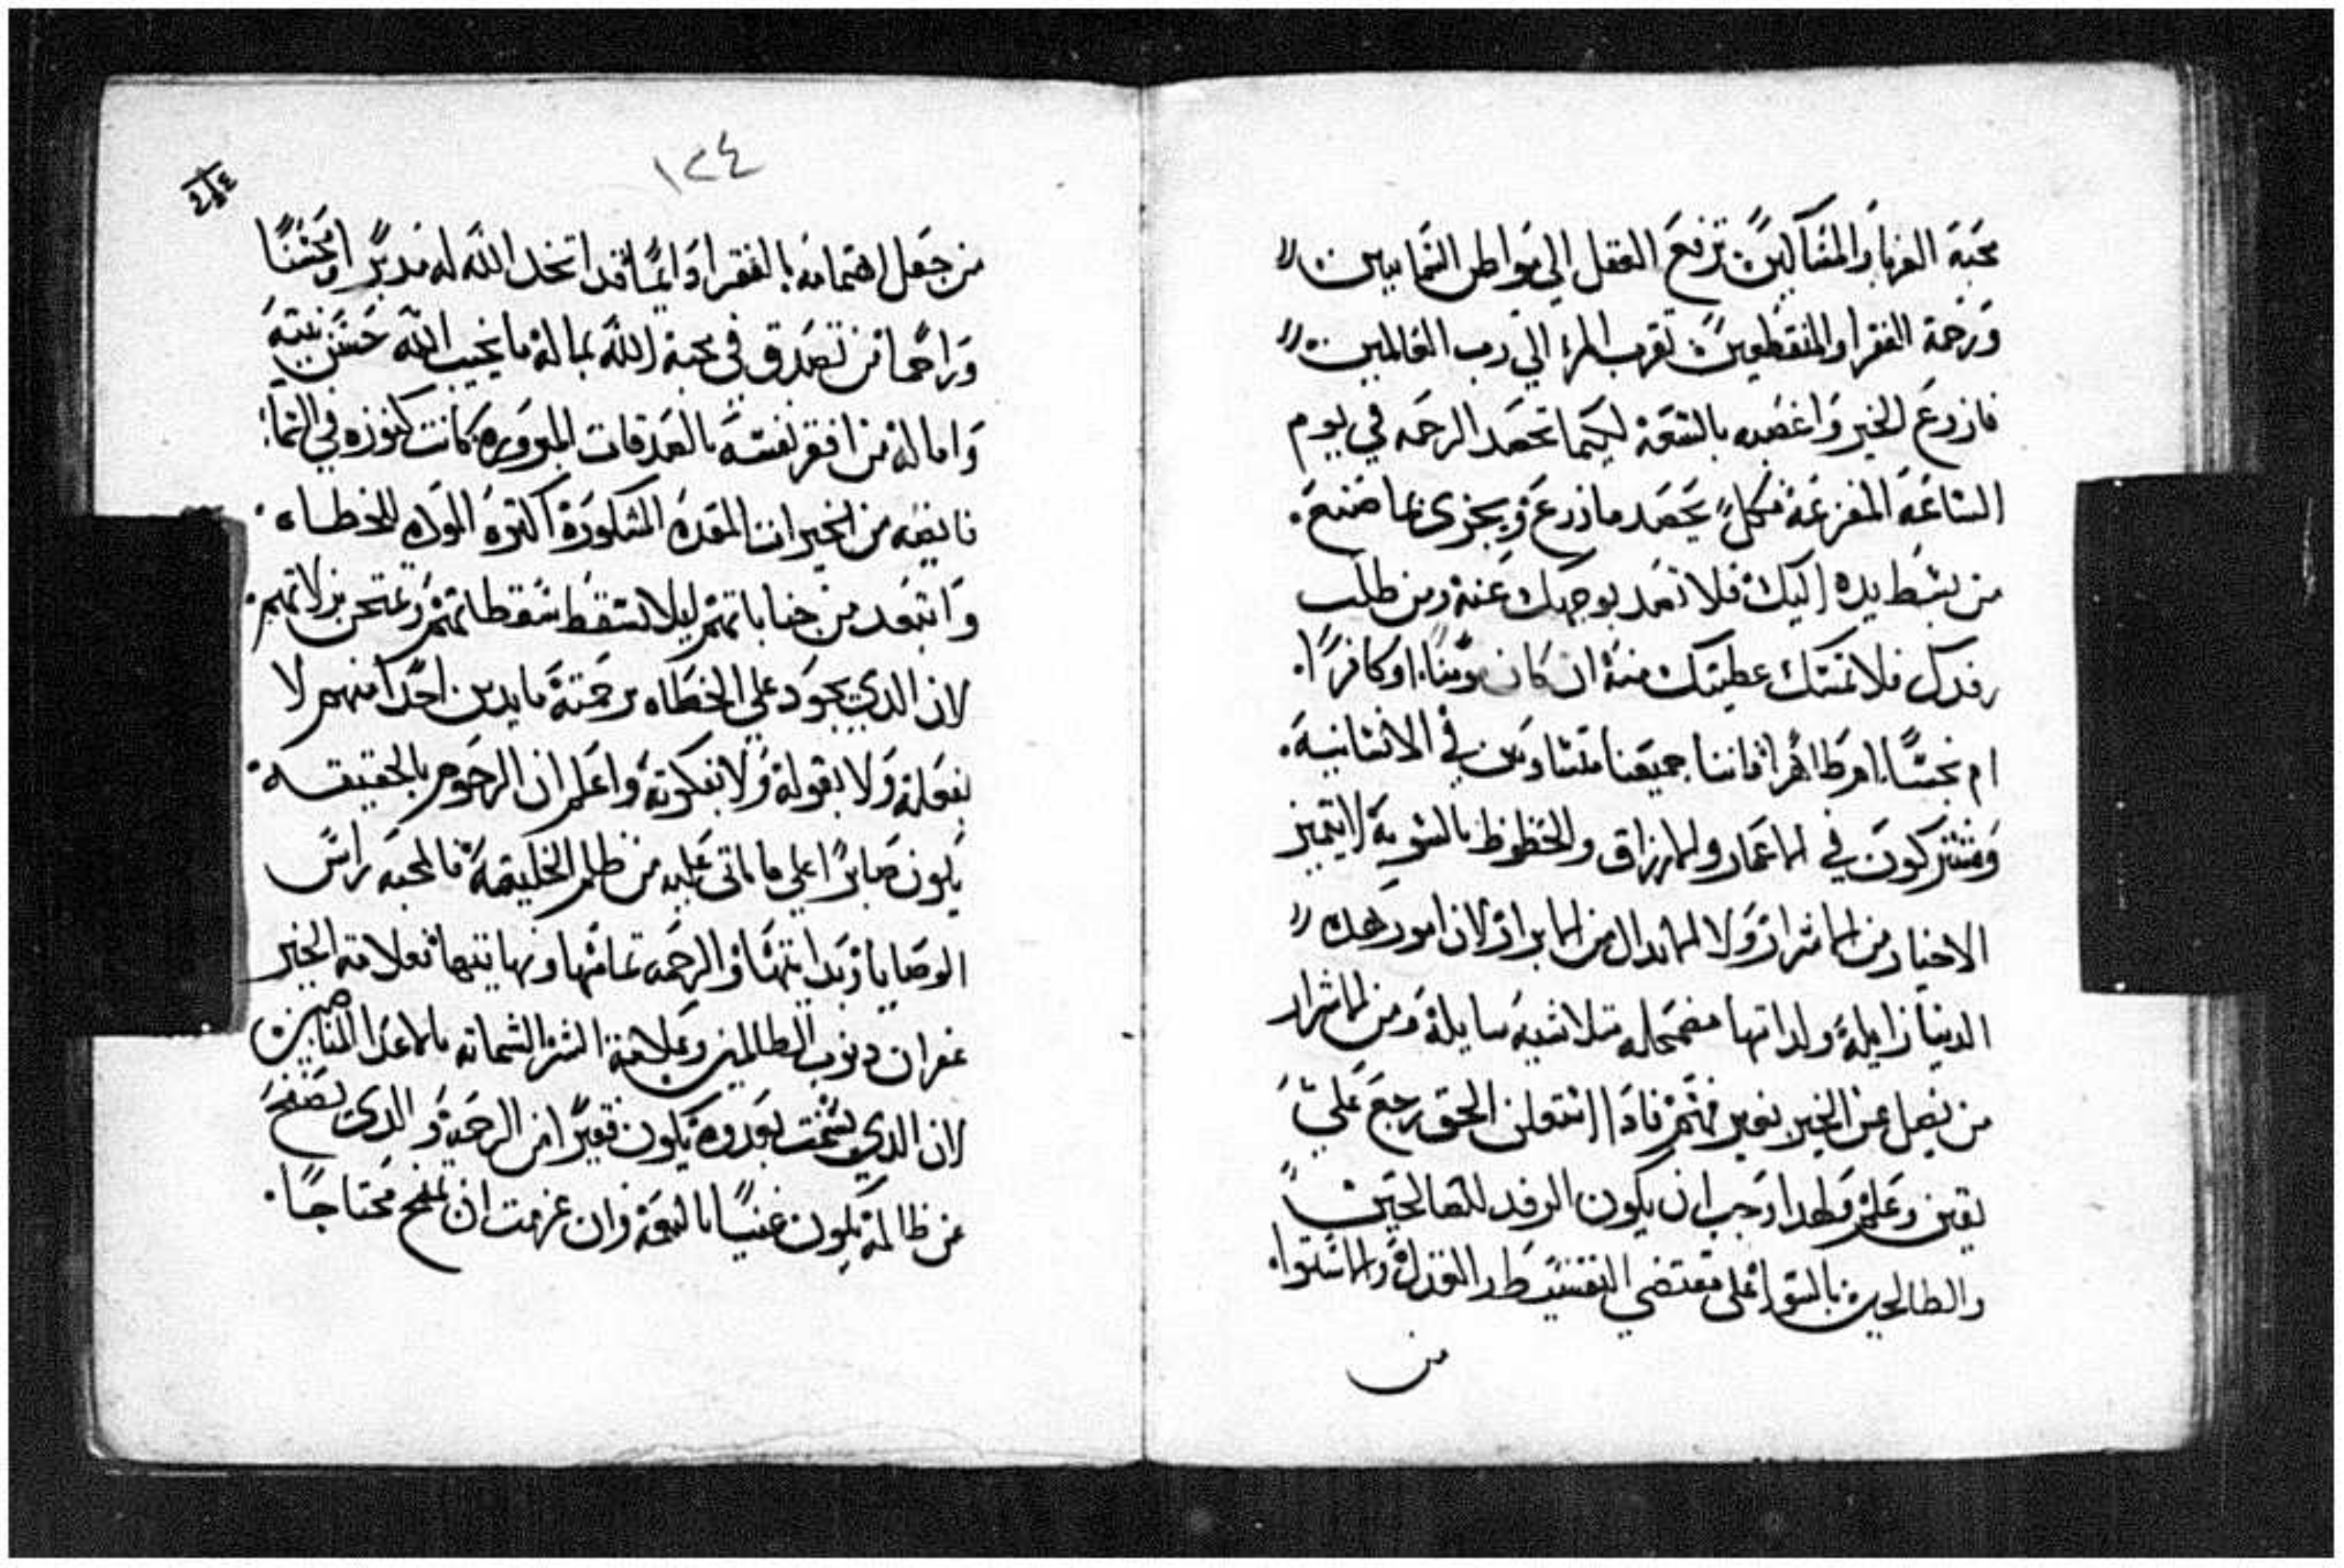 محبة الغربا والمساكين ترفع العقل الي مواطن السمايين
ورحمة الفقرا والمنقطعين تقرب المرء الي رب العالمين
فازرع الخير واغصبه بالسعة ليكما تحصد الرحمه في يوم
الساعة المفزعة فكل يحصد مازرع ويجزي بما صنع
من بسط يده اليك فلا تصد بوجهك عنه ومن طلب
رفدك فلا تمسك عطيتك منه ان كان مومنا او كافرا
ام نجسا ام طاهرا فاننا جميعنا متساوين في الانسانية
ومشتركون في الاعمار والارزاق والحظوظ بالسوية لا يتميز
الاخيار من الاشرار ولا الابدال من الابرار لان امور هده
الدنيا زايلة ولداتها مضمحله متلاشيه سايلة ومن الاشرار
من يفعل عن الخير بغير فهم فادا استعلن الحق رجع علي
يقين وعلم ولهدا وجب ان يكون الرفد للصالحين
والطالحين بالسوا علي مقتضي العدل والاستوا
من
١٢٤
من جعل اهتمامه بالفقرا دايما قد اتخد الله له مدبرا ومحسنا
وراحما من تصدق في محبة الله بماله ما يخيب الله حسن نيته
واماله من افقر نفسه بالصدقات المبروره كانت كنوزه في السما
من الخيرات المشكورة اكتره الولاه للخطاه
وابتعد من جناياتهم ليلا تسقط سقطاتهم وتمتحن بزلاتهم
لان الدي يجود علي الخطاه برحمته ما يدين احدا منهم لا
بفعله ولا بقوله ولا بفكرته واعلم ان الرحوم بالحقيقه
يكون صابرا علي ما ياتي عليه من ظلم الخليقة فالمحبه راس
الوصايا وبدايتها والرحمه تمامها ونهايتها فعلامة الخير
غفران دنوب الظالمين وعلامة الشر الشماته بالاعدا المناصبين
لان الدي يشمت بعدوه يكون فقيرا من الرحمة والدي يصفح
عن ظالمه يكون غنيا بالنعمة وان عزمت ان تمنح محتاجا